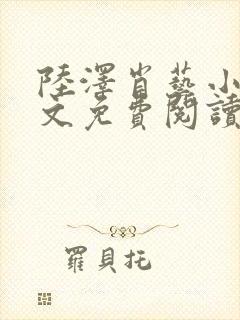 陸澤肖藝小
文免費閱讀
羅貝托